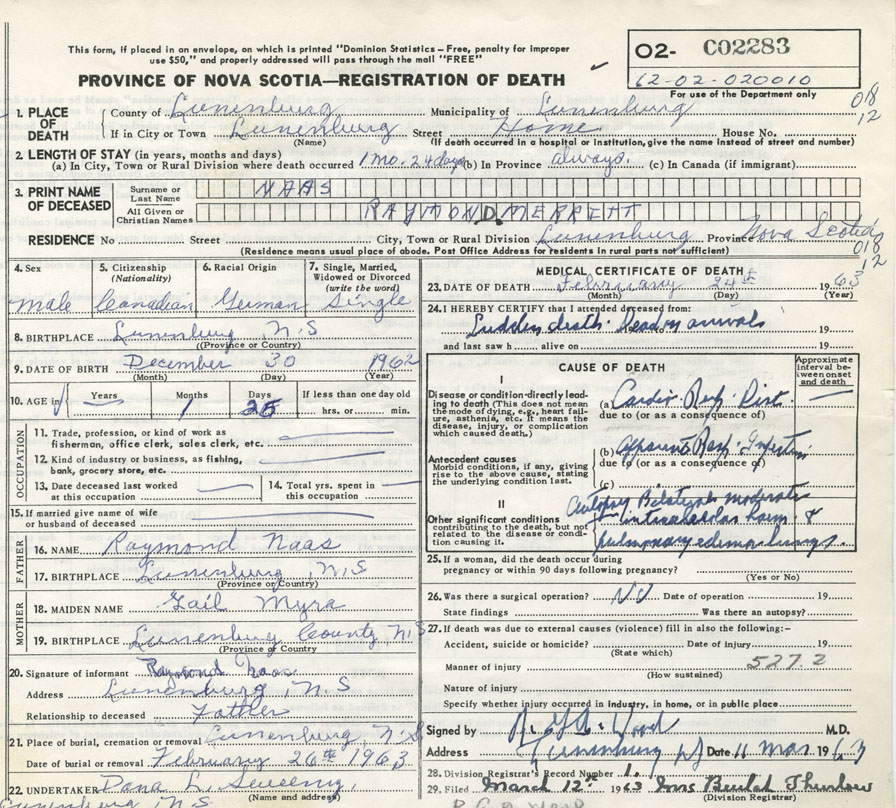 This form, if placed in an envelope, on which is printed "Dominion Statistics – Free, penalty for improper
use $50," and properly addressed will pass through the mail "FREE"
PROVINCE OF NOVA SCOTIA—REGISTRATION OF DEATH
02- C02283
62-02-020010
For use of the Department only
018
12
1. PLACE OF DEATH
County of Lunenburg Municipality of Lunenburg
If in City or Town Lunenburg Street Home House No.
(Name) (If death occurred in a hospital or institution, give the name instead of street and number)
2. LENGTH OF STAY (in years, months and days)
(a) In City, Town or Rural Division where death occurred 1 mo. 24 days (b) In Province always. (c) In Canada (if immigrant)
3. PRINT NAME OF DECEASED
Surname or Last Name NAAS
All Given or Christian Names RAYMOND MERRITT
RESIDENCE No Street City, Town or Rural Division Lunenburg Province Nova Scotia
(Residence means usual place of abode. Post Office Address for residents in rural parts not sufficient)
018
12
4. Sex
male
5. Citizenship (Nationality)
Canadian
6. Racial Origin
German
7. Single, Married, Widowed or Divorced (write the word)
Single
8. BIRTHPLACE Lunenburg N.S
(Province or Country)
9. DATE OF BIRTH December 30 1962
(Month) (Day) (Year)
10. AGE in Years Months 1 Days 25 If less than one day old
hrs. or min.
OCCUPATION
11. Trade, profession, or kind of work as
fisherman, office clerk, sales clerk, etc.
12. Kind of industry or business, as fishing,
bank, grocery store, etc.
13. Date deceased last worked
at this occupation
14. Total yrs. spent in
this occupation
15. If married give name of wife
or husband of deceased
FATHER
16. NAME Raymond Naas
17. BIRTHPLACE Lunenburg, N.S
(Province or Country)
MOTHER
18. MAIDEN NAME Gail Myra
19. BIRTHPLACE Lunenburg County N S
(Province or Country)
20. Signature of informant Raymond Naas
Address Lunenburg, N.S
Relationship to deceased Father
21. Place of burial, cremation or removal Lunenburg N.S
Date of burial or removal February 26th 1963
22. UNDERTAKER Dana L. Sweeny,
(Name and address)
Lunenburg N S
MEDICAL CERTIFICATE OF DEATH
23. DATE OF DEATH February 24th 1963
(Month) (Day) (Year)
24. I HEREBY CERTIFY that I attended deceased from:
Sudden death. Dead on arrival 19
and last saw h alive on 19
CAUSE OF DEATH
Approximate interval between onset and death
I
Disease or condition-directly leading
to death (This does not mean
the mode of dying, e.g., heart failure,
asthenia, etc. It means the
disease, injury, or complication
which caused death.)
(a) Cardio. Resp. Dist.
due to (or as a consequence of)
Antecedent causes
Morbid conditions, if any, giving
rise to the above cause, stating
the underlying condition last.
(b) Apparent Resp. Infection
due to (or as a consequence of)
(c)
II
Other significant conditions
contributing to the death, but not
related to the disease or condition
causing it.
Autopsy Bilateral moderate
intraalveolar haem. &
pulmonary edema lungs.
25. If a woman, did the death occur during
pregnancy or within 90 days following pregnancy?
(Yes or No)
26. Was there a surgical operation? NO Date of operation 19
State findings Was there an autopsy?
27. If death was due to external causes (violence) fill in also the following:–
Accident, suicide or homicide? Date of injury 19
(State which)
Manner of injury 527.2
(How sustained)
Nature of injury
Specify whether injury occurred in industry, in home, or in public place
Signed by Wood M.D.
Address Lunenburg NS Date 11 Mar 1963
28. Division Registrar's Record Number 1.
29. Filed March 12th 1963 Mrs Beulah Thurlow
(Division Registrar)